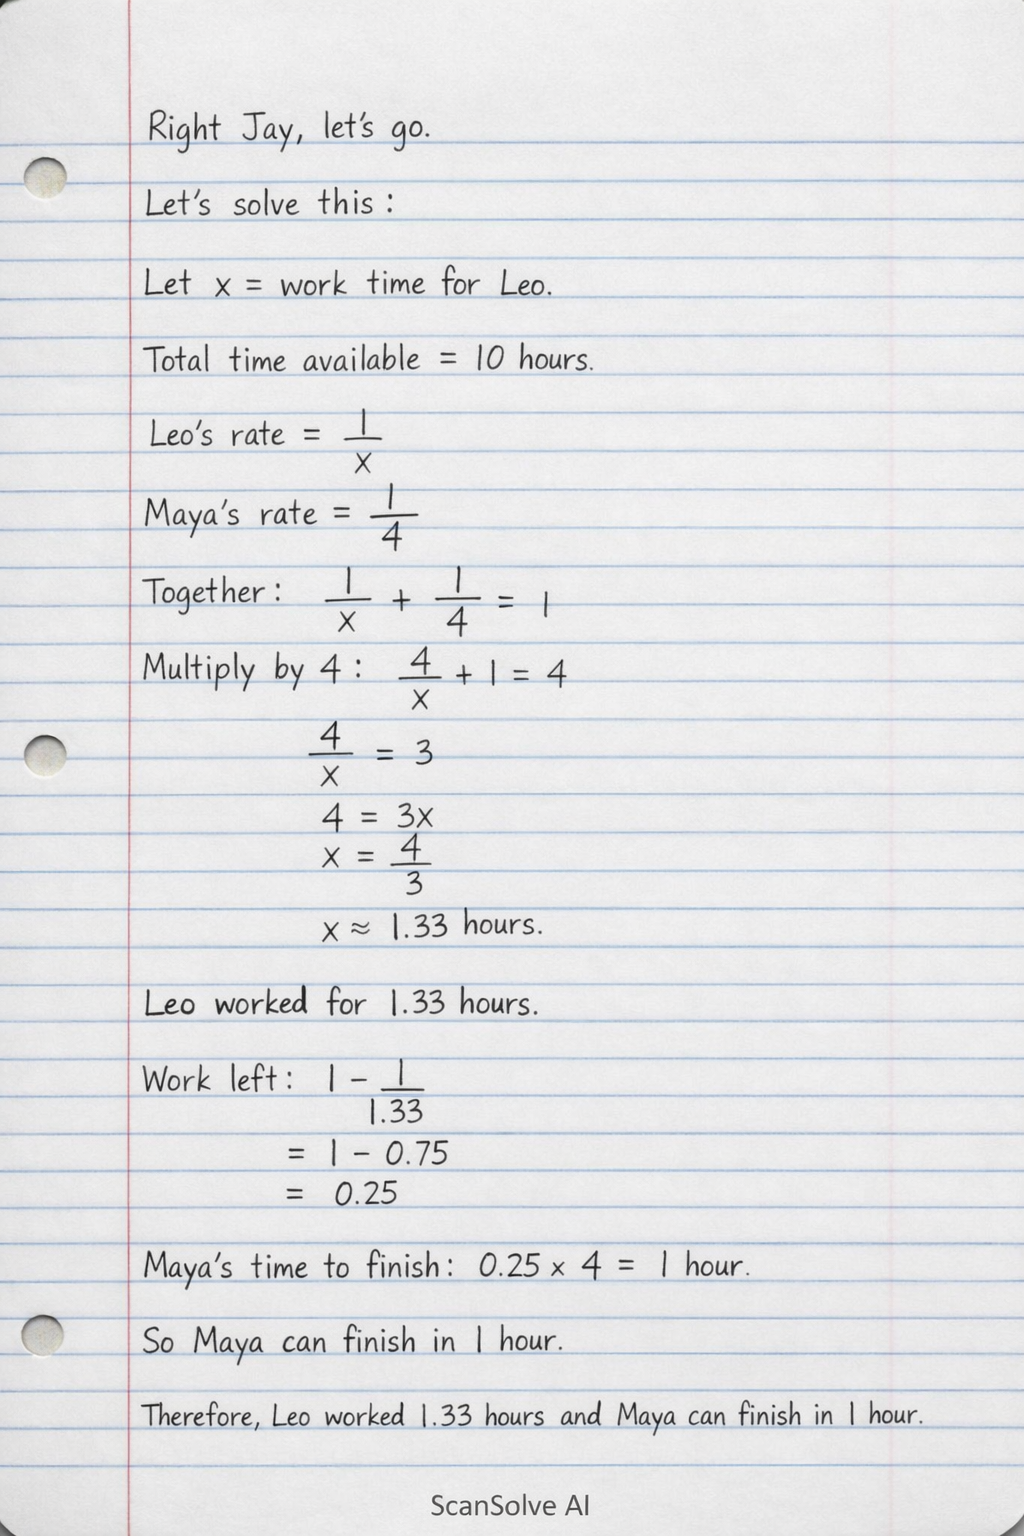 Right Jay, let's go.
Let's solve this :
Let x = work time for Leo.
Total time available = 10 hours.
Leo's rate = 1/x
Maya's rate = 1/4
Together : 1/x + 1/4 = 1
Multiply by 4 : 4/x + 1 = 4
4/x = 3
4 = 3x
x = 4/3
x ≈ 1.33 hours.
Leo worked for 1.33 hours.
Work left : 1 - 1/1.33
= 1 - 0.75
= 0.25
Maya's time to finish : 0.25 × 4 = 1 hour.
So Maya can finish in 1 hour.
Therefore, Leo worked 1.33 hours and Maya can finish in 1 hour.
ScanSolve AI